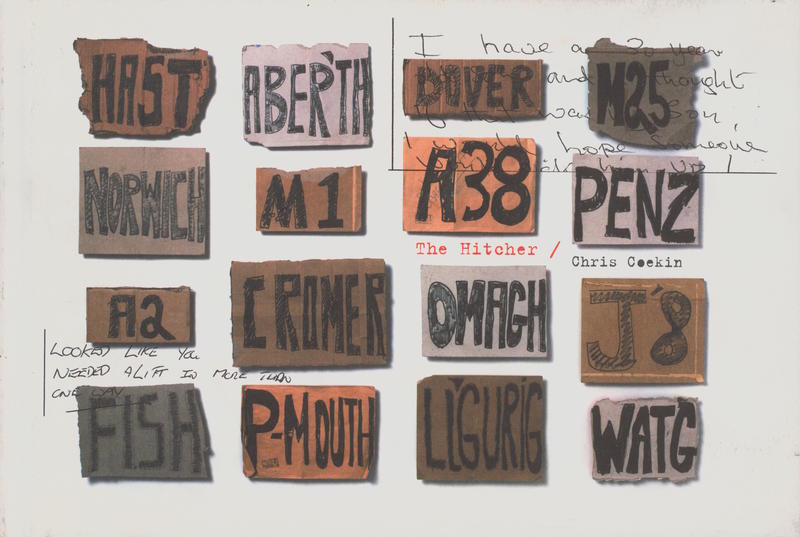 HAST'
ABER'TH
DOVER
M25
I have a 20 year
and thought
if that was Son,
I would hope Someone
him up!
NORWICH
M1
A38
PENZ
The Hitcher / Chris Coekin
A2
CROMER
OMAGH
J'8
LOOKED LIKE YOU
NEEDED A LIFT IN MORE THAN
ONE WAY
FISH
P-MOUTH
LIGURIG
WATG